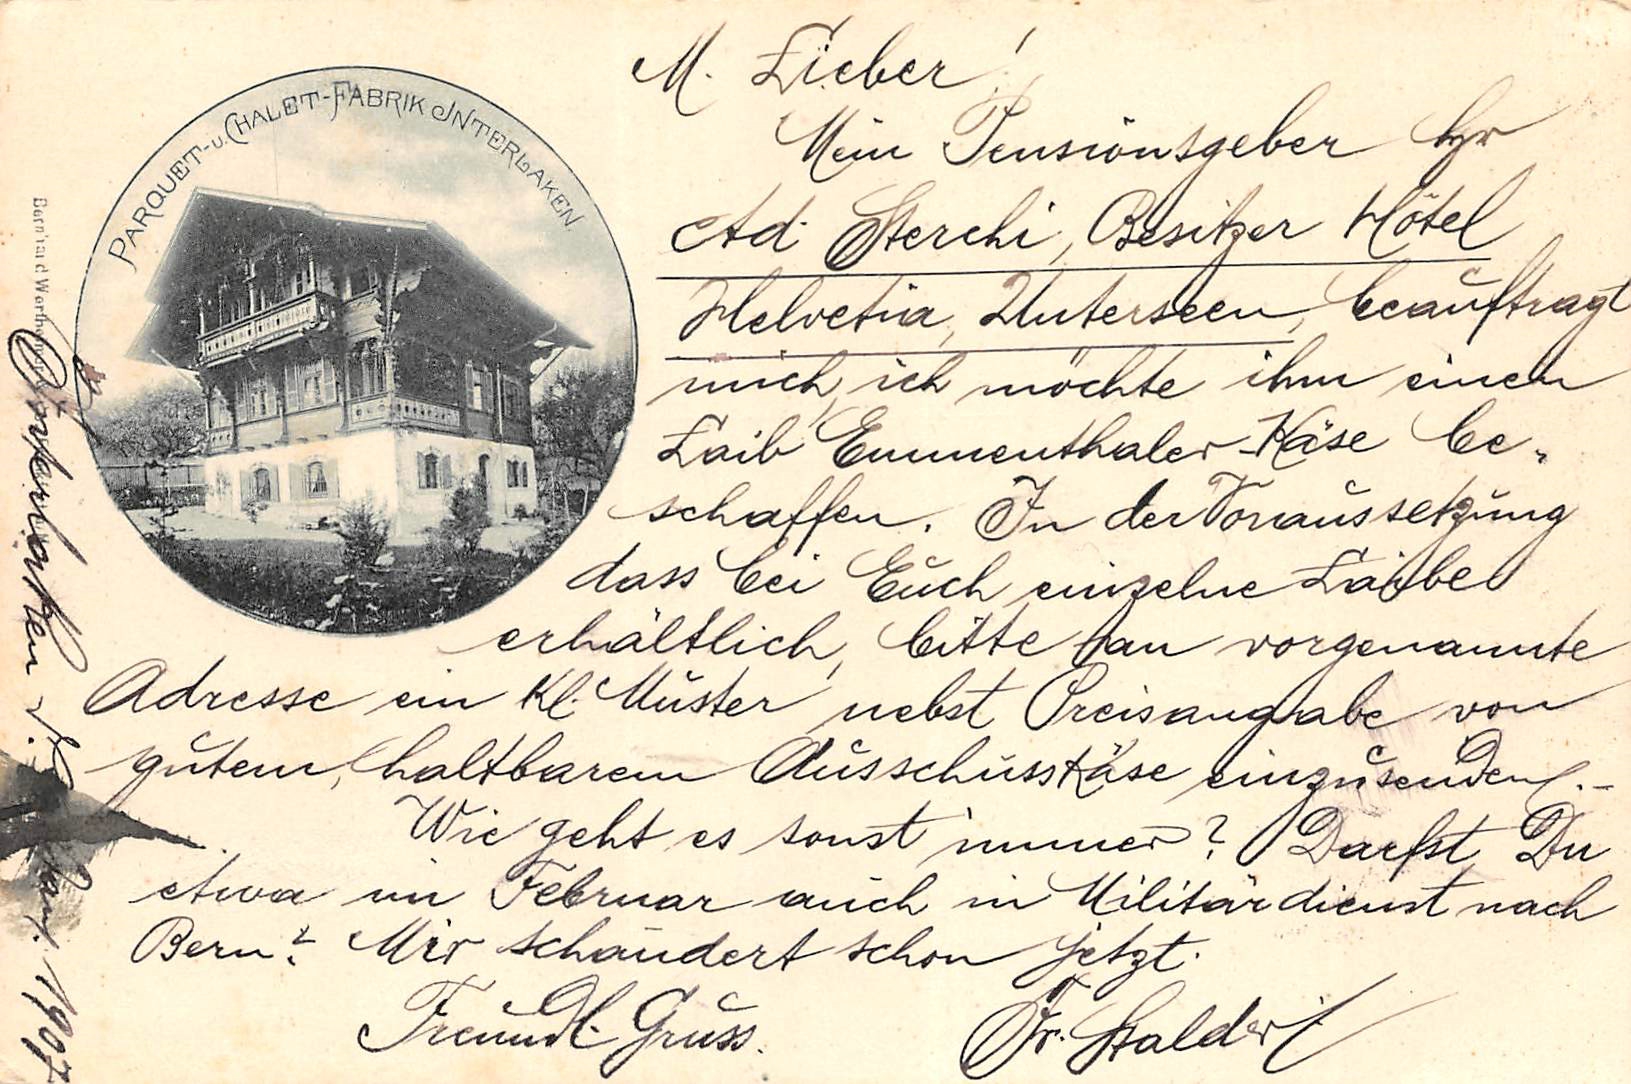 PARQUET- u. CHALET-FABRIK INTERLAKEN
M. Lieber!
Mein Pensionsgeber Hr
Ad. Sterchi, Besitzer Hôtel
Helvetia, Unterseen, beauftragt
mich, ich möchte ihm einen
Laib Emmenthaler-Käse be-
schaffen. In der Voraussetzung
dass bei Euch einzelne Laibe
erhältlich, bitte an vorgenannte
Adresse ein kl. Muster nebst Preisangabe von
gutem, haltbarem Ausschusskäse einzusenden.-
Wie geht es sonst immer? Darfst Du
etwa im Februar auch in Militärdienst nach
Bern? Mir schaudert schon jetzt.
Freundl. Gruss.
Fr. Stalder
Interlaken
1907